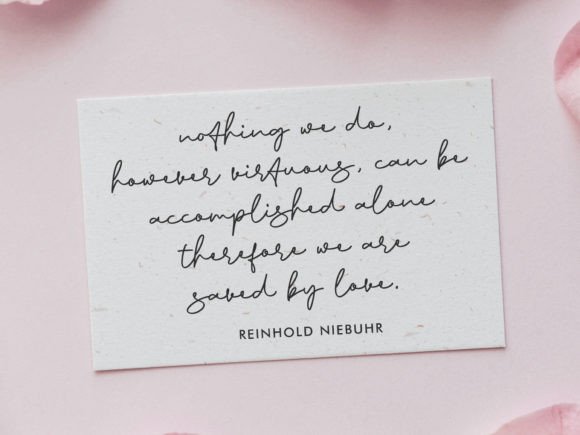 nothing we do,
however virtuous, can be
accomplished alone
therefore we are
saved by love.
REINHOLD NIEBUHR